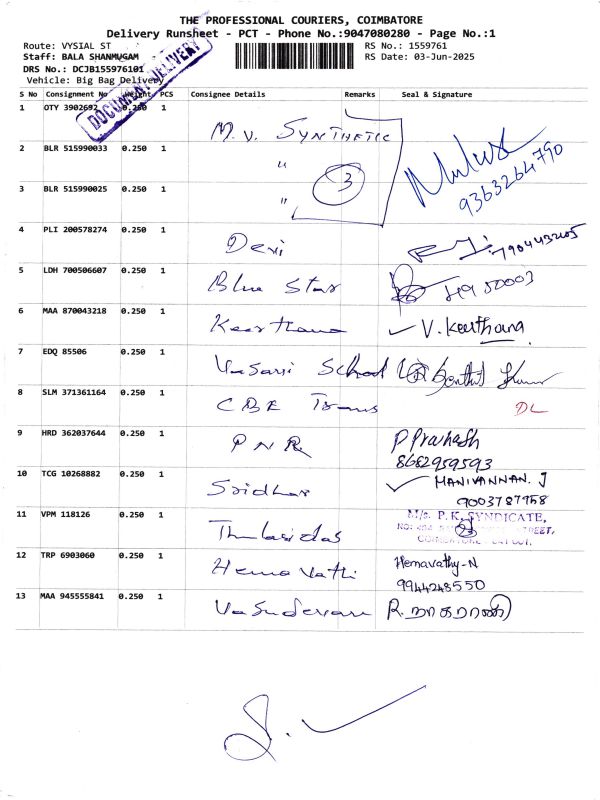 THE PROFESSIONAL COURIERS, COIMBATORE
Delivery Runsheet - PCT - Phone No.:9047080280 - Page No.:1
Route: VYSIAL ST RS No.: 1559761
Staff: BALA SHANMUGAM RS Date: 03-Jun-2025
DRS No.: DCJB155976101
Vehicle: Big Bag Delivery
DOCUMENT DELIVERY
S No Consignment No Weight PCS Consignee Details Remarks Seal & Signature
1 OTY 3902692 0.250 1 M.V. SYNTHETIC
2 BLR 515990033 0.250 1 "
3 BLR 515990025 0.250 1 " 3 9363264790
4 PLI 200578274 0.250 1 Devi 7904432605
5 LDH 700506607 0.250 1 Blue Star
6 MAA 870043218 0.250 1 Keerthana V. Keerthana
7 EDQ 85506 0.250 1 Vasavi School
8 SLM 371361164 0.250 1 CBE Trans DL
9 HRD 362037644 0.250 1 PNR P Prakash
8682959593
10 TCG 10268882 0.250 1 Sridhar MANIVANNAN. J
9003787958
11 VPM 118126 0.250 1 Thulasidas M/s. P.K. SYNDICATE,
12 TRP 6903060 0.250 1 Hemavathi Hemavathy-N
9944248550
13 MAA 945555841 0.250 1 Vasudevan R. நாகராணி